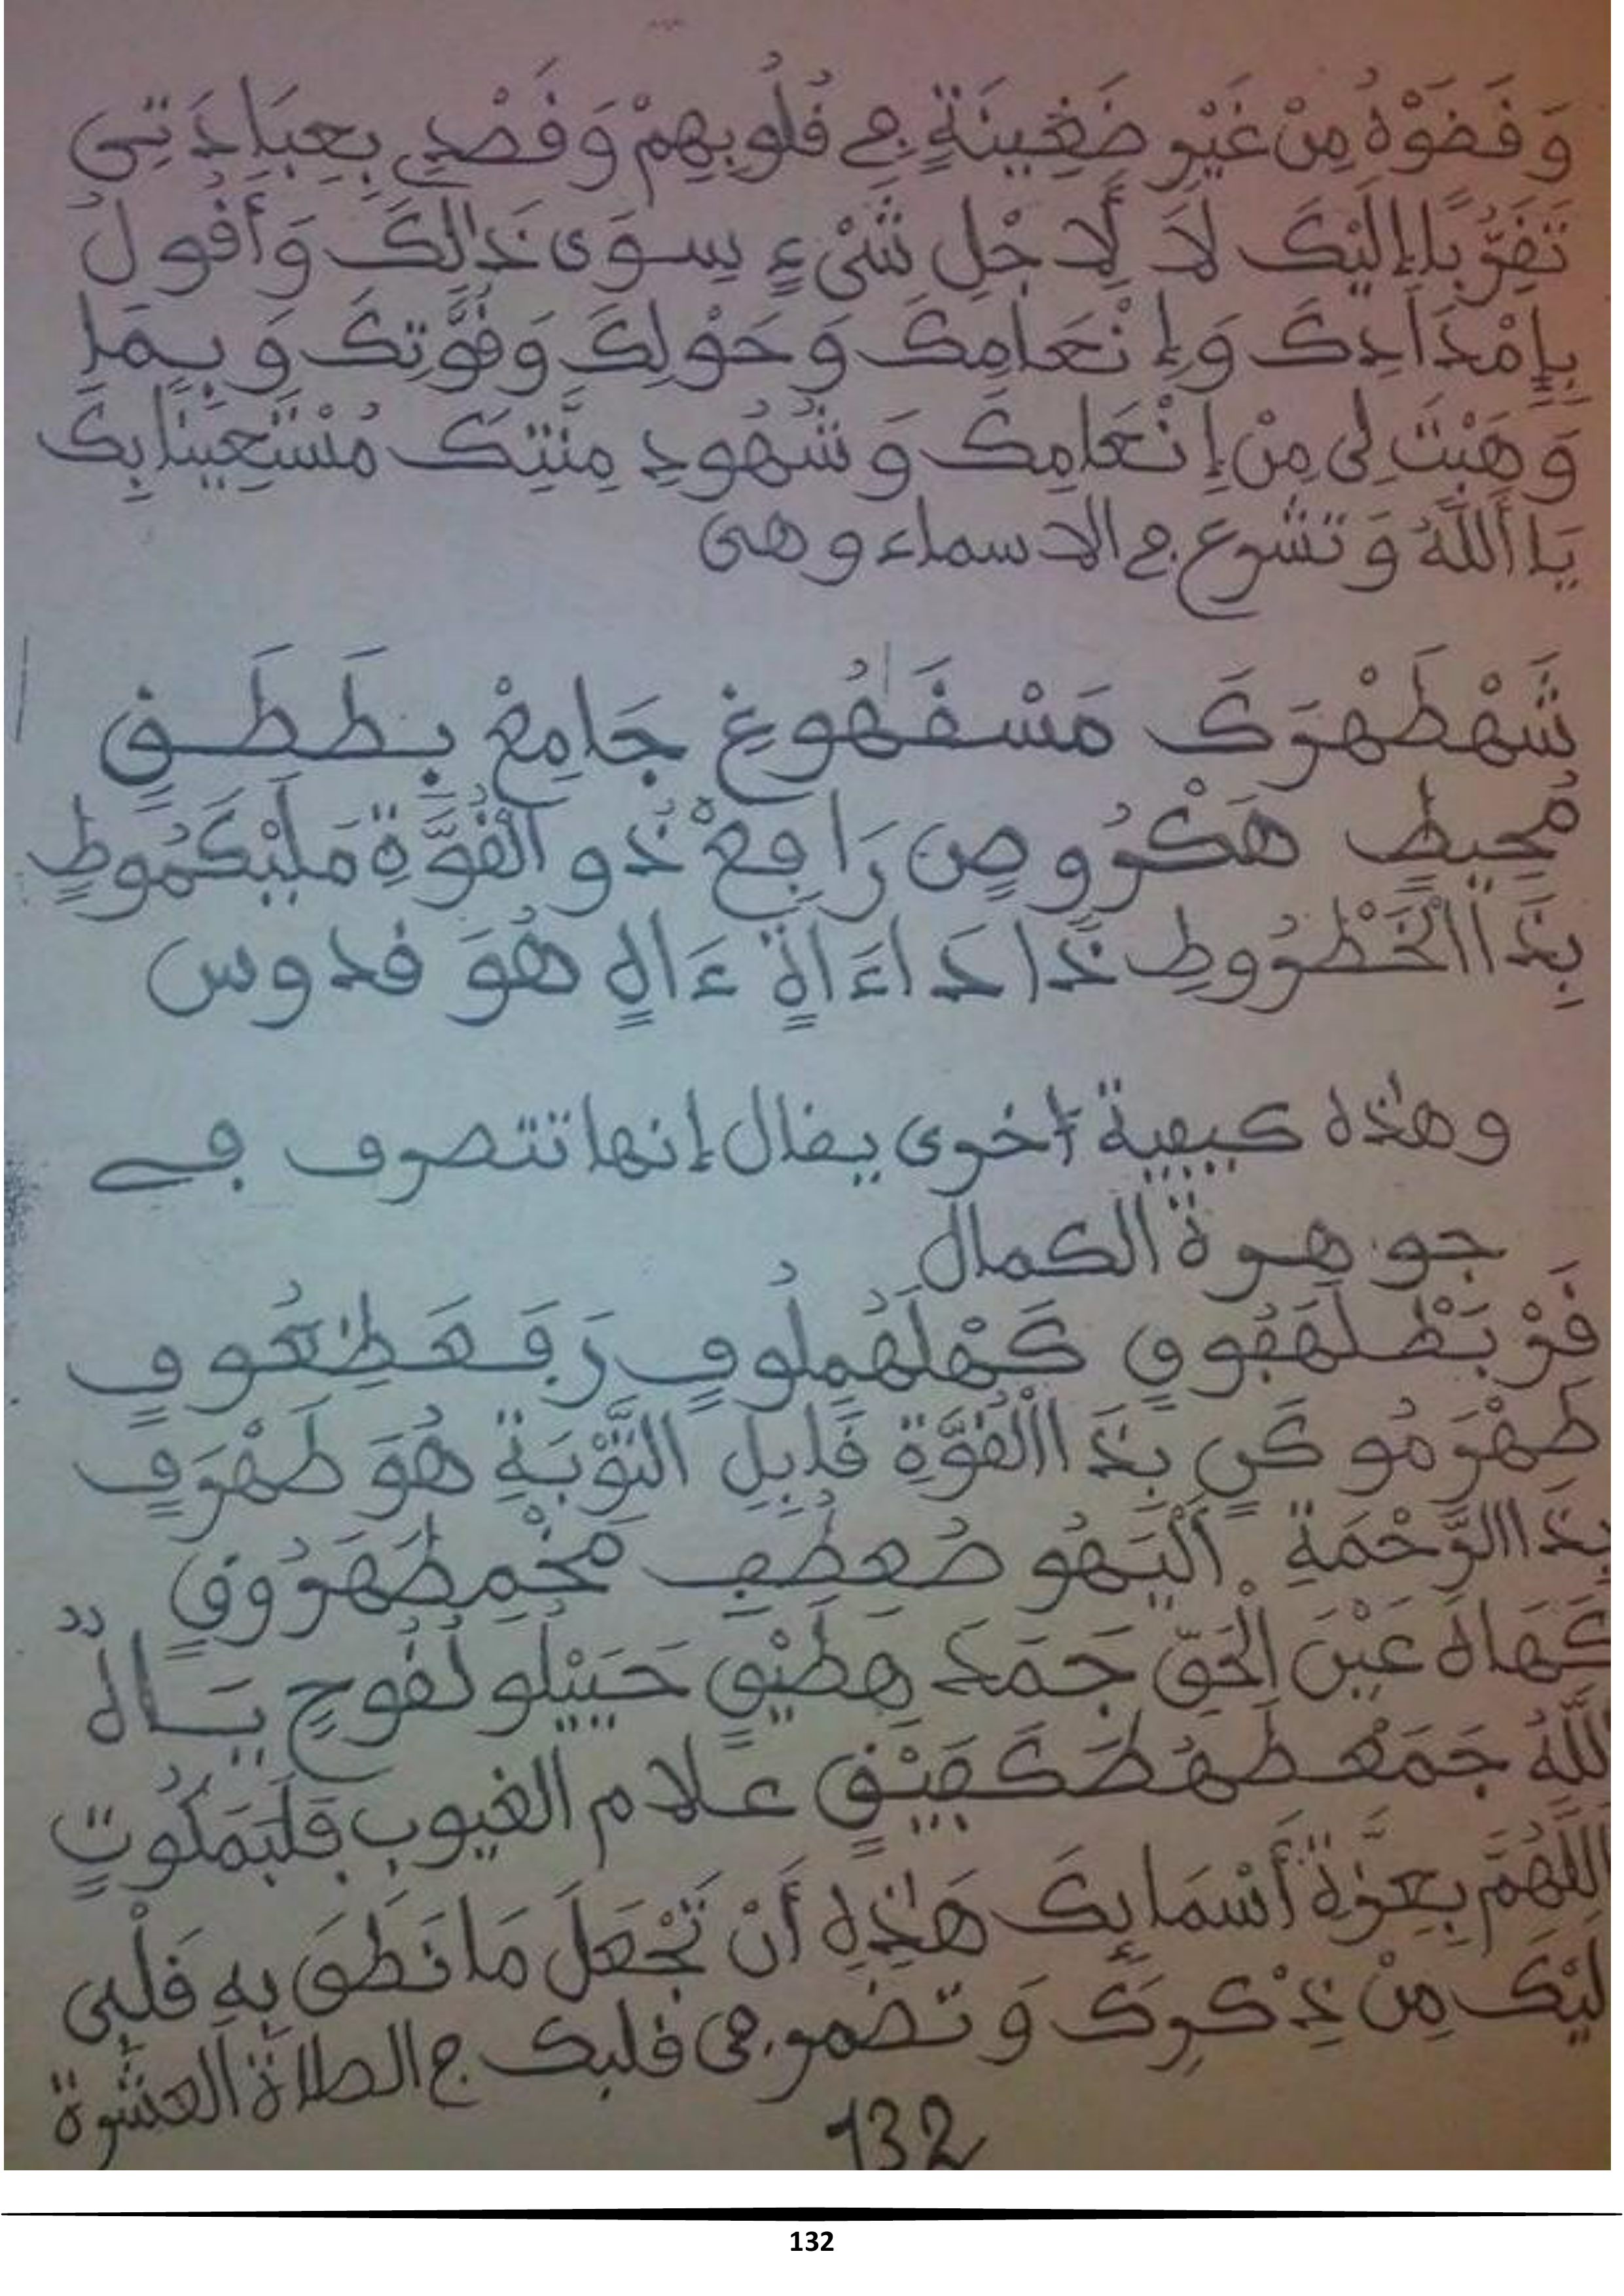 وَفَضَوْهُ مِنْ غَيْرِ ضَغِينَةٍ فِي قُلُوبِهِمْ وَقَصْدِي بِعِبَادَتِي
تَقَرُّبًا إِلَيْكَ لَا لِأَجْلِ شَيْءٍ سِوَى ذَالِكَ وَأَقُولُ
بِإِمْدَادِكَ وَإِنْعَامِكَ وَحَوْلِكَ وَقُوَّتِكَ وَبِمَا
وَهَبْتَ لِي مِنْ إِنْعَامِكَ وَشُهُودِ مِنَّتِكَ مُسْتَعِينًا بِكَ
يَا أَللَّهُ وَتَشْرع في الاسماء وهي
شَهْطَهْرَكَ مَسْقَهُوغٍ جَامِعْ بِطَطَقٍ
مُحِيطٍ هَكْرُوصٍ رَافِعْ ذُو الْقُوَّةِ مَلَيْكَمُوطٍ
بِذَا الْخَطْرُوطِ ذَا دَاءَ اهٍ ءَاهٍ هُوَ قدوس
وهذه كيفية أخرى يقال إنها تتصرف في
جوهرة الكمال
قَرْبَطْلَهَقُوقٍ كَهْلَهُمِلُوفٍ رَفَعَطِعُوفٍ
طِهْرَمُوكَنٍ بِذَا الْقُوَّةِ قَابِلِ التَّوْبَةِ هُوَ طَهْرَفٍ
بِذَا الرَّحْمَةِ أَلْيَهُو صُعِطِفِ مَخْمِطَهَرُوقٍ
كَهَاهُ عَيْنَ الْحَقِّ جَمَدَ هطَيْقٍ حَيَيْلُو لُقُوحٍ يَاهٌ
للَّهُ جَمَعْطَهُطَكَفَيْقٍ علام الغيوب فَلْتَمَكُوتٍ
اللَّهُمَّ بِعِزَّةِ أَسْمَائِكَ هَذِهِ أَنْ تَجْعَلَ مَا نَطَقَ بِهِ قَلْبِي
لَيْكَ مِنْ ذِكْرِكَ وَتضمر في قلبك ج الصلاة العشرة
132
132